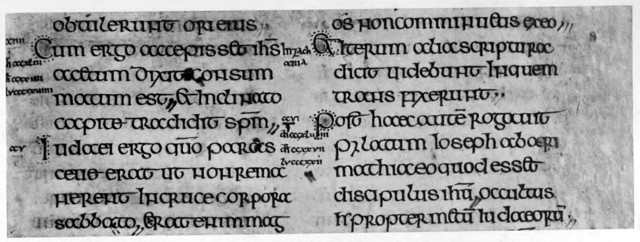 obtulerunt ori eius
Cum ergo accepisset ihs
accetum dixit consum
matum est,, & inclinato
capite tradidit spm,,
Iudaei ergo qm paras
ceue erat ut non rema
nerent in cruce corpora
sabbato,, erat enim mag
os non comminuetis ex eo,,
& iterum alia scriptura
dicit uidebunt in quem
trans fixerunt
Post haec autē rogauit
pylatum ioseph ab ari
mathia eo quod esset
discipulus ihu,, occultus
propter metū iudaeorū